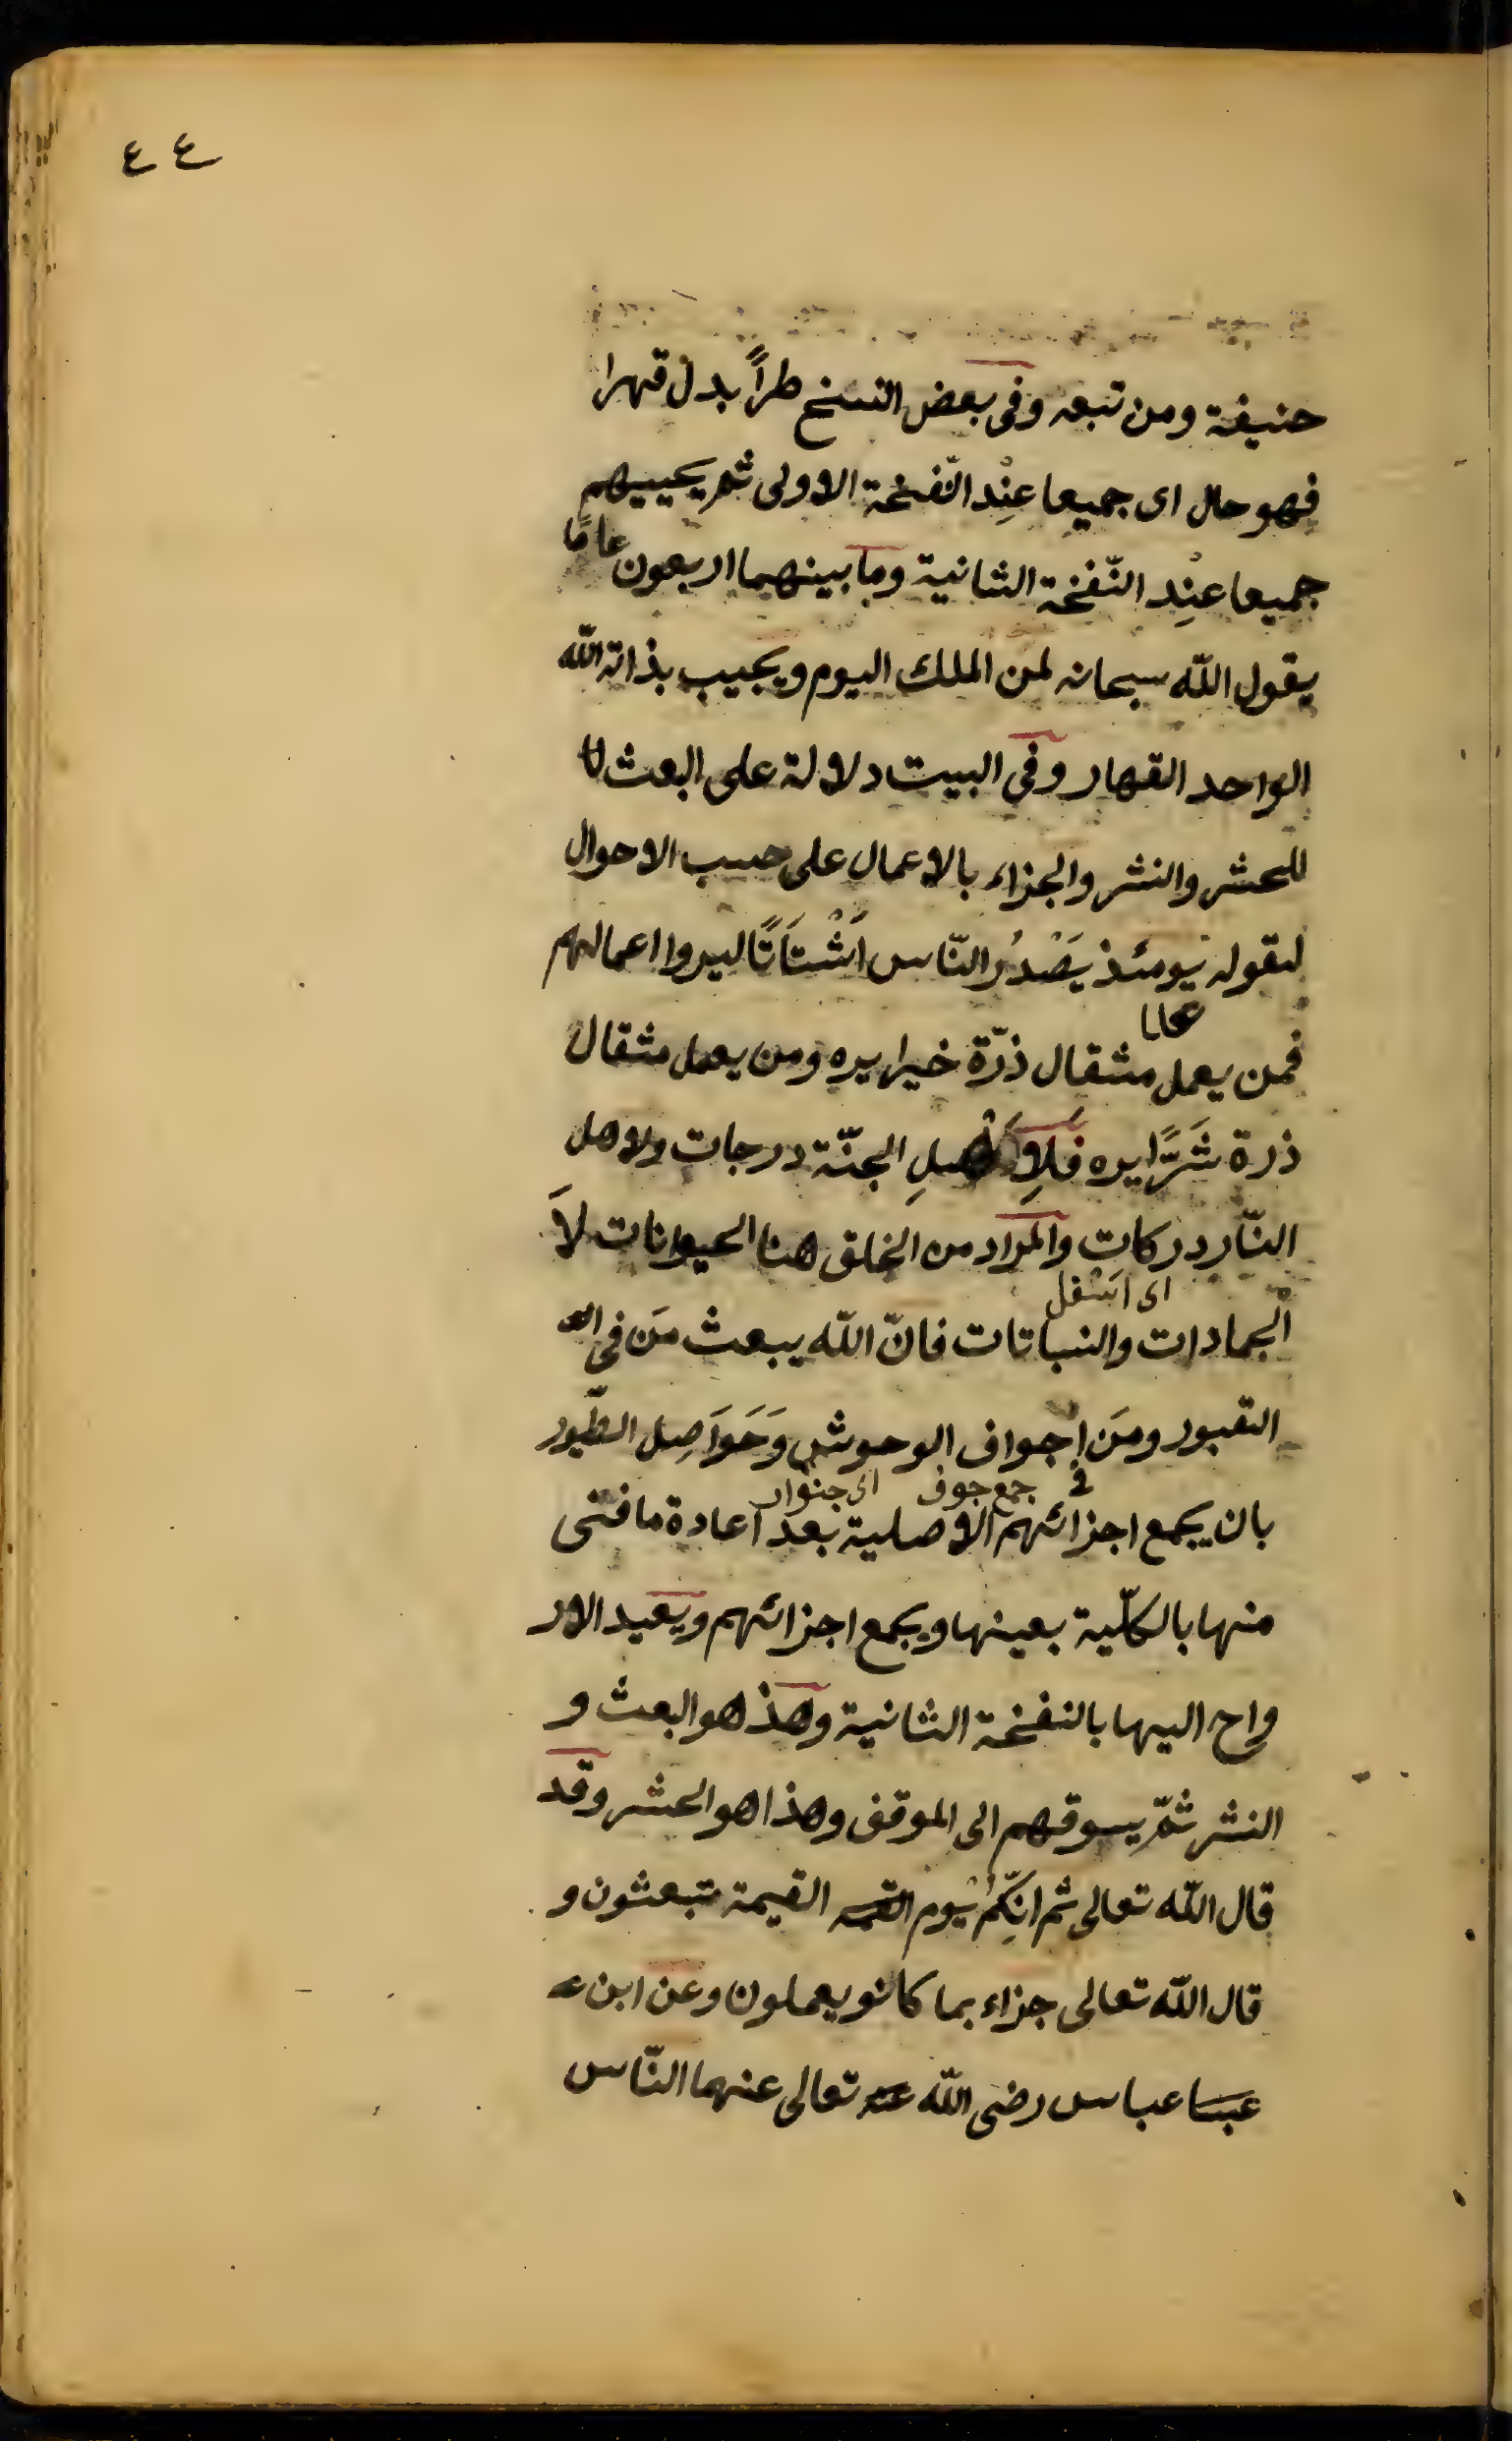 ٤٤
حنيفة ومن تبعه وفى بعض النسخ طراً بدل قهرا
فهو حال اى جميعا عنِْد النّفخة الاولى ثم يحييهم
جميعا عنِْد النّفخة الثانية وما بينهما اربعون عامًا
يقول اللّه سبحانه لمن الملك اليوم ويجيب بذاته اللّه
الواحد القهار وفى البيت دلالة على البعث لا
للحشر والنشر والجزاء بالاعمال على حسب الاحوال
لقوله يومئذ يَصْدُر النّاس اَشْتَاتًا ليروا اعمالهم
فمن يعمل مثقال ذرّة خيرا يره ومن يعمل مثقال
ذرة شَرًّا يره فَلِاَهْلِ الجنّة درجات ولاهل
النّار دركات والمراد من الخلق هنا الحيوانات لاَ
اى اسْفل
الجمادات والنباتات فانّ اللّه يبعث مَن فى
القبور ومَن اجواف الوحوش وَحَوَاصِل الطّيور
فى جمع جوف
بان يجمع اجزائهم الاصلية بعد اعادة ما فنى
منها بالكلّية بعينها ويجمع اجزائهم ويعيد الار
واح اليها بالنفخة الثانية وهذ هو البعث و
النشر ثمّ يسوقهم الى الموقف وهذا هو الحشر وقد
قال اللّه تعالى ثم انّكِمُ يْوم القيمة تبعثون و
قال اللّه تعالى جزاء بما كانو يعملون وعن ابن
عباس رضى اللّه تعالى عنهما النّاس